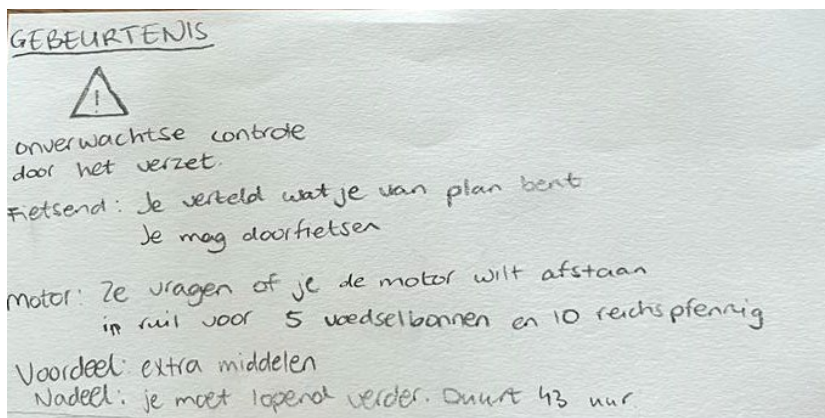 GEBEURTENIS
!
onverwachtse controle
door het verzet.
Fietsend: Je verteld wat je van plan bent
Je mag doorfietsen
Motor: Ze vragen of je de motor wilt afstaan
in ruil voor 5 voedselbonnen en 10 reichspfennig
Voordeel: extra middelen
Nadeel: je moet lopend verder. Duurt 43 uur.